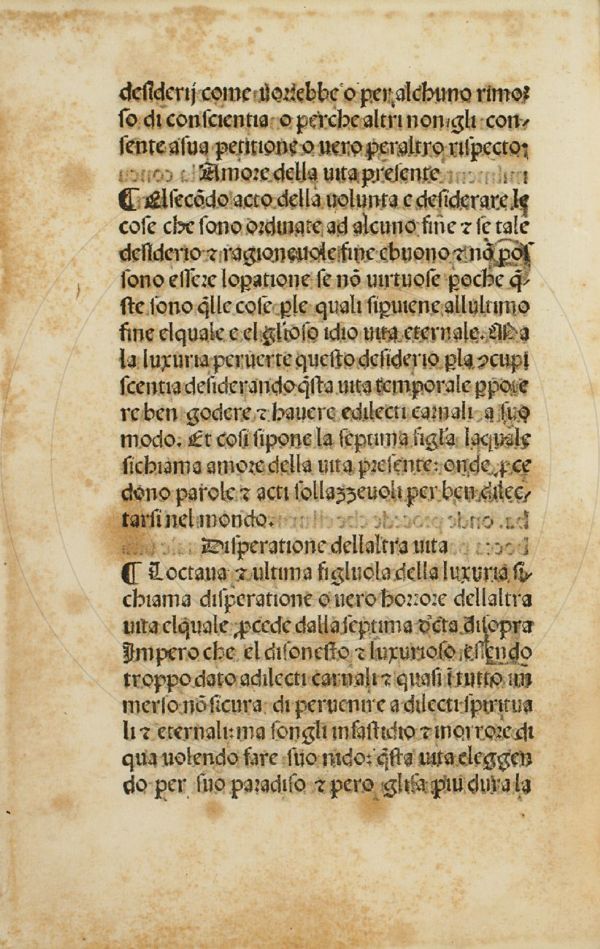 desiderij come uorrebbe o per alchuno rimor
so di conscientia o perche altri non gli con/
sente a sua petitione o uero per altro rispecto:
Amore della uita presente
¶ El secōdo acto della uolunta e desiderare le
cose che sono ordinate ad alcuno fine ⁊ se tale
desiderio ⁊ ragioneuole fine e buono ⁊ nō pos
sono essere loꝑatione se nō uirtuose ꝑoche q̄
ste sono q̄lle cose ꝑle quali siꝑuiene allultimo
fine elquale e el gl̄ioso idio uita eternale. Ma
la luxuria peruerte questo desiderio ꝑla ꝯcupi
scentia desiderando q̄sta uita temporale ꝑpote
re ben godere ⁊ hauere edilecti carnali a suo
modo. Et cosi sipone la septima figl̄a laquale
sichiama amore della uita presente: onde ꝓce
dono parole ⁊ acti sollazzeuoli per ben dilec/
tarsi nel mondo.
Disperatione dellaltra uita
¶ Loctaua ⁊ ultima figluola della luxuria si/
chiama disperatione o uero horrore dellaltra
uita elquale ꝓcede dalla septima d̄cta disopra
Impero che el disonesto ⁊ luxurioso essendo
troppo dato adilecti carnali ⁊ quasi ī tutto im
merso nō sicura di peruenire a dilecti spiritua
li ⁊ eternali: ma songli infastidio ⁊ inorrore di
qua uolendo fare suo nido: q̄sta uita eleggen
do per suo paradiso ⁊ pero glisa piu dura la